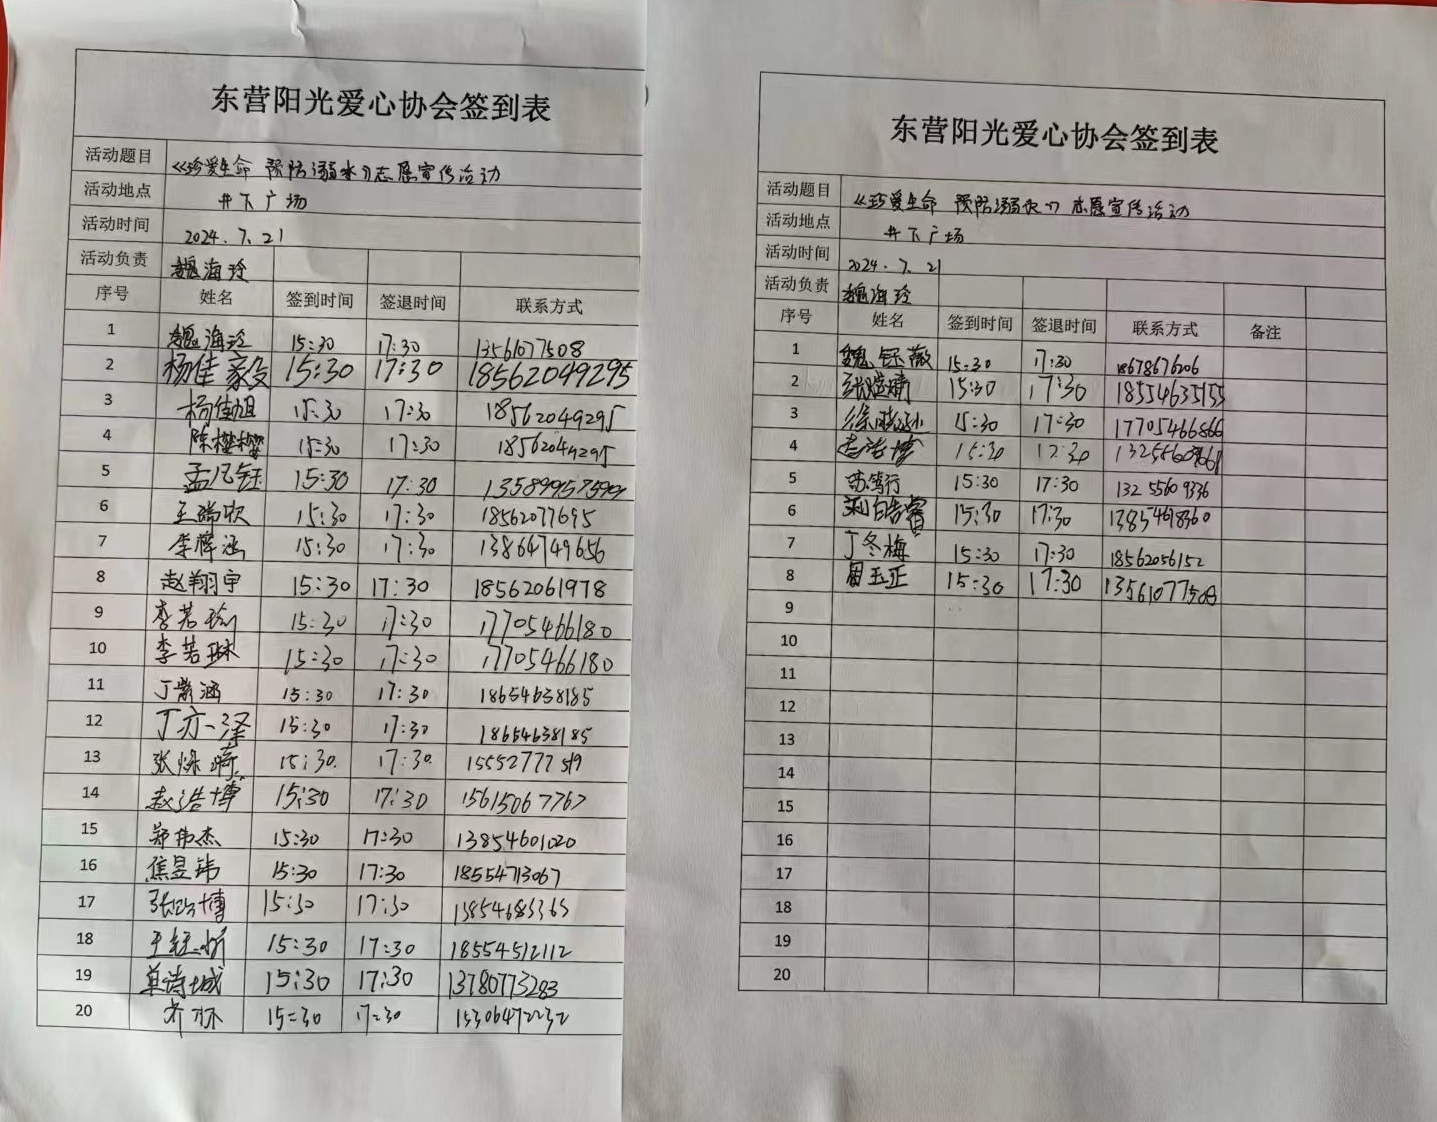 东营阳光爱心协会签到表
活动题目 《珍爱生命 预防溺水》志愿宣传活动
活动地点 井下广场
活动时间 2024.7.21
活动负责 魏海玲
序号 姓名 签到时间 签退时间 联系方式
1 魏海玲 15:30 17:30 13561077508
2 杨佳毅 15:30 17:30 18562049295
3 杨佳旭 15:30 17:30 18562049295
4 15:30 17:30 18562049295
5 孟凡钰 15:30 17:30
6 王瑞欣 15:30 17:30 18562077695
7 李梓涵 15:30 17:30 13864749656
8 赵翔宇 15:30 17:30 18562061978
9 李若瑜 15:30 17:30 17705466180
10 李若琳 15:30 17:30 17705466180
11 丁紫涵 15:30 17:30 18654638185
12 丁亦泽 15:30 17:30 18654638185
13 15:30 17:30 15552777519
14 赵浩博 15:30 17:30 15615067767
15 郑伟杰 15:30 17:30 13854601020
16 焦昱玮 15:30 17:30 18554713067
17 15:30 17:30
18 15:30 17:30 18554512112
19 单诗城 15:30 17:30 13780773283
20 15:30 17:30
东营阳光爱心协会签到表
活动题目 《珍爱生命 预防溺水》志愿宣传活动
活动地点 井下广场
活动时间 2024.7.21
活动负责 魏海玲
序号 姓名 签到时间 签退时间 联系方式 备注
1 魏钰薇 15:30 17:30 18678676206
2 15:30 17:30 18554635155
3 15:30 17:30 17705466866
4 15:30
5 苏笃行 15:30 17:30 132 5560 9336
6 15:30 17:30 13854618360
7 丁冬梅 15:30 17:30 18562056152
8 周玉正 15:30 17:30 13561077508
9
10
11
12
13
14
15
16
17
18
19
20